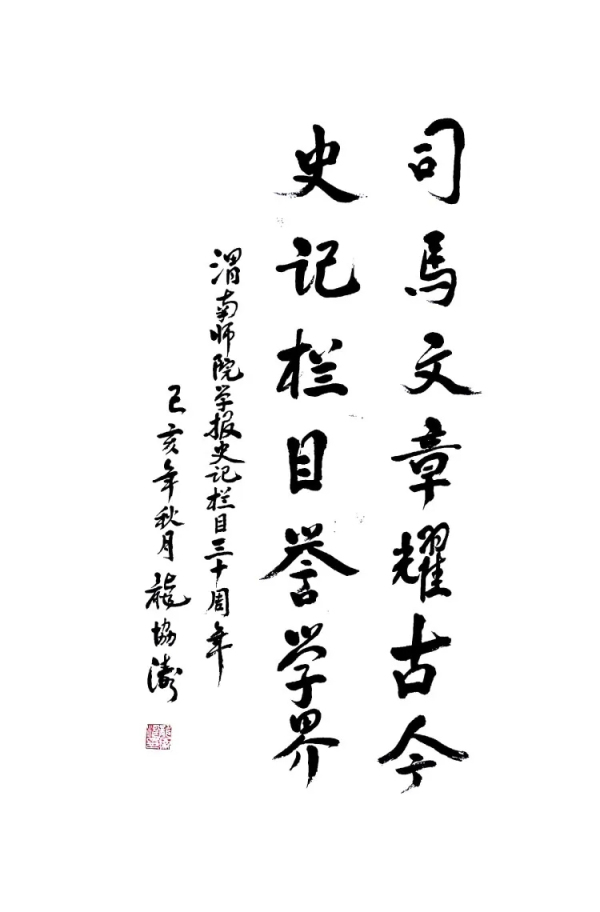 司马文章耀古今
史记栏目誉学界
渭南师院学报史记栏目三十周年
己亥年秋月 龍协涛